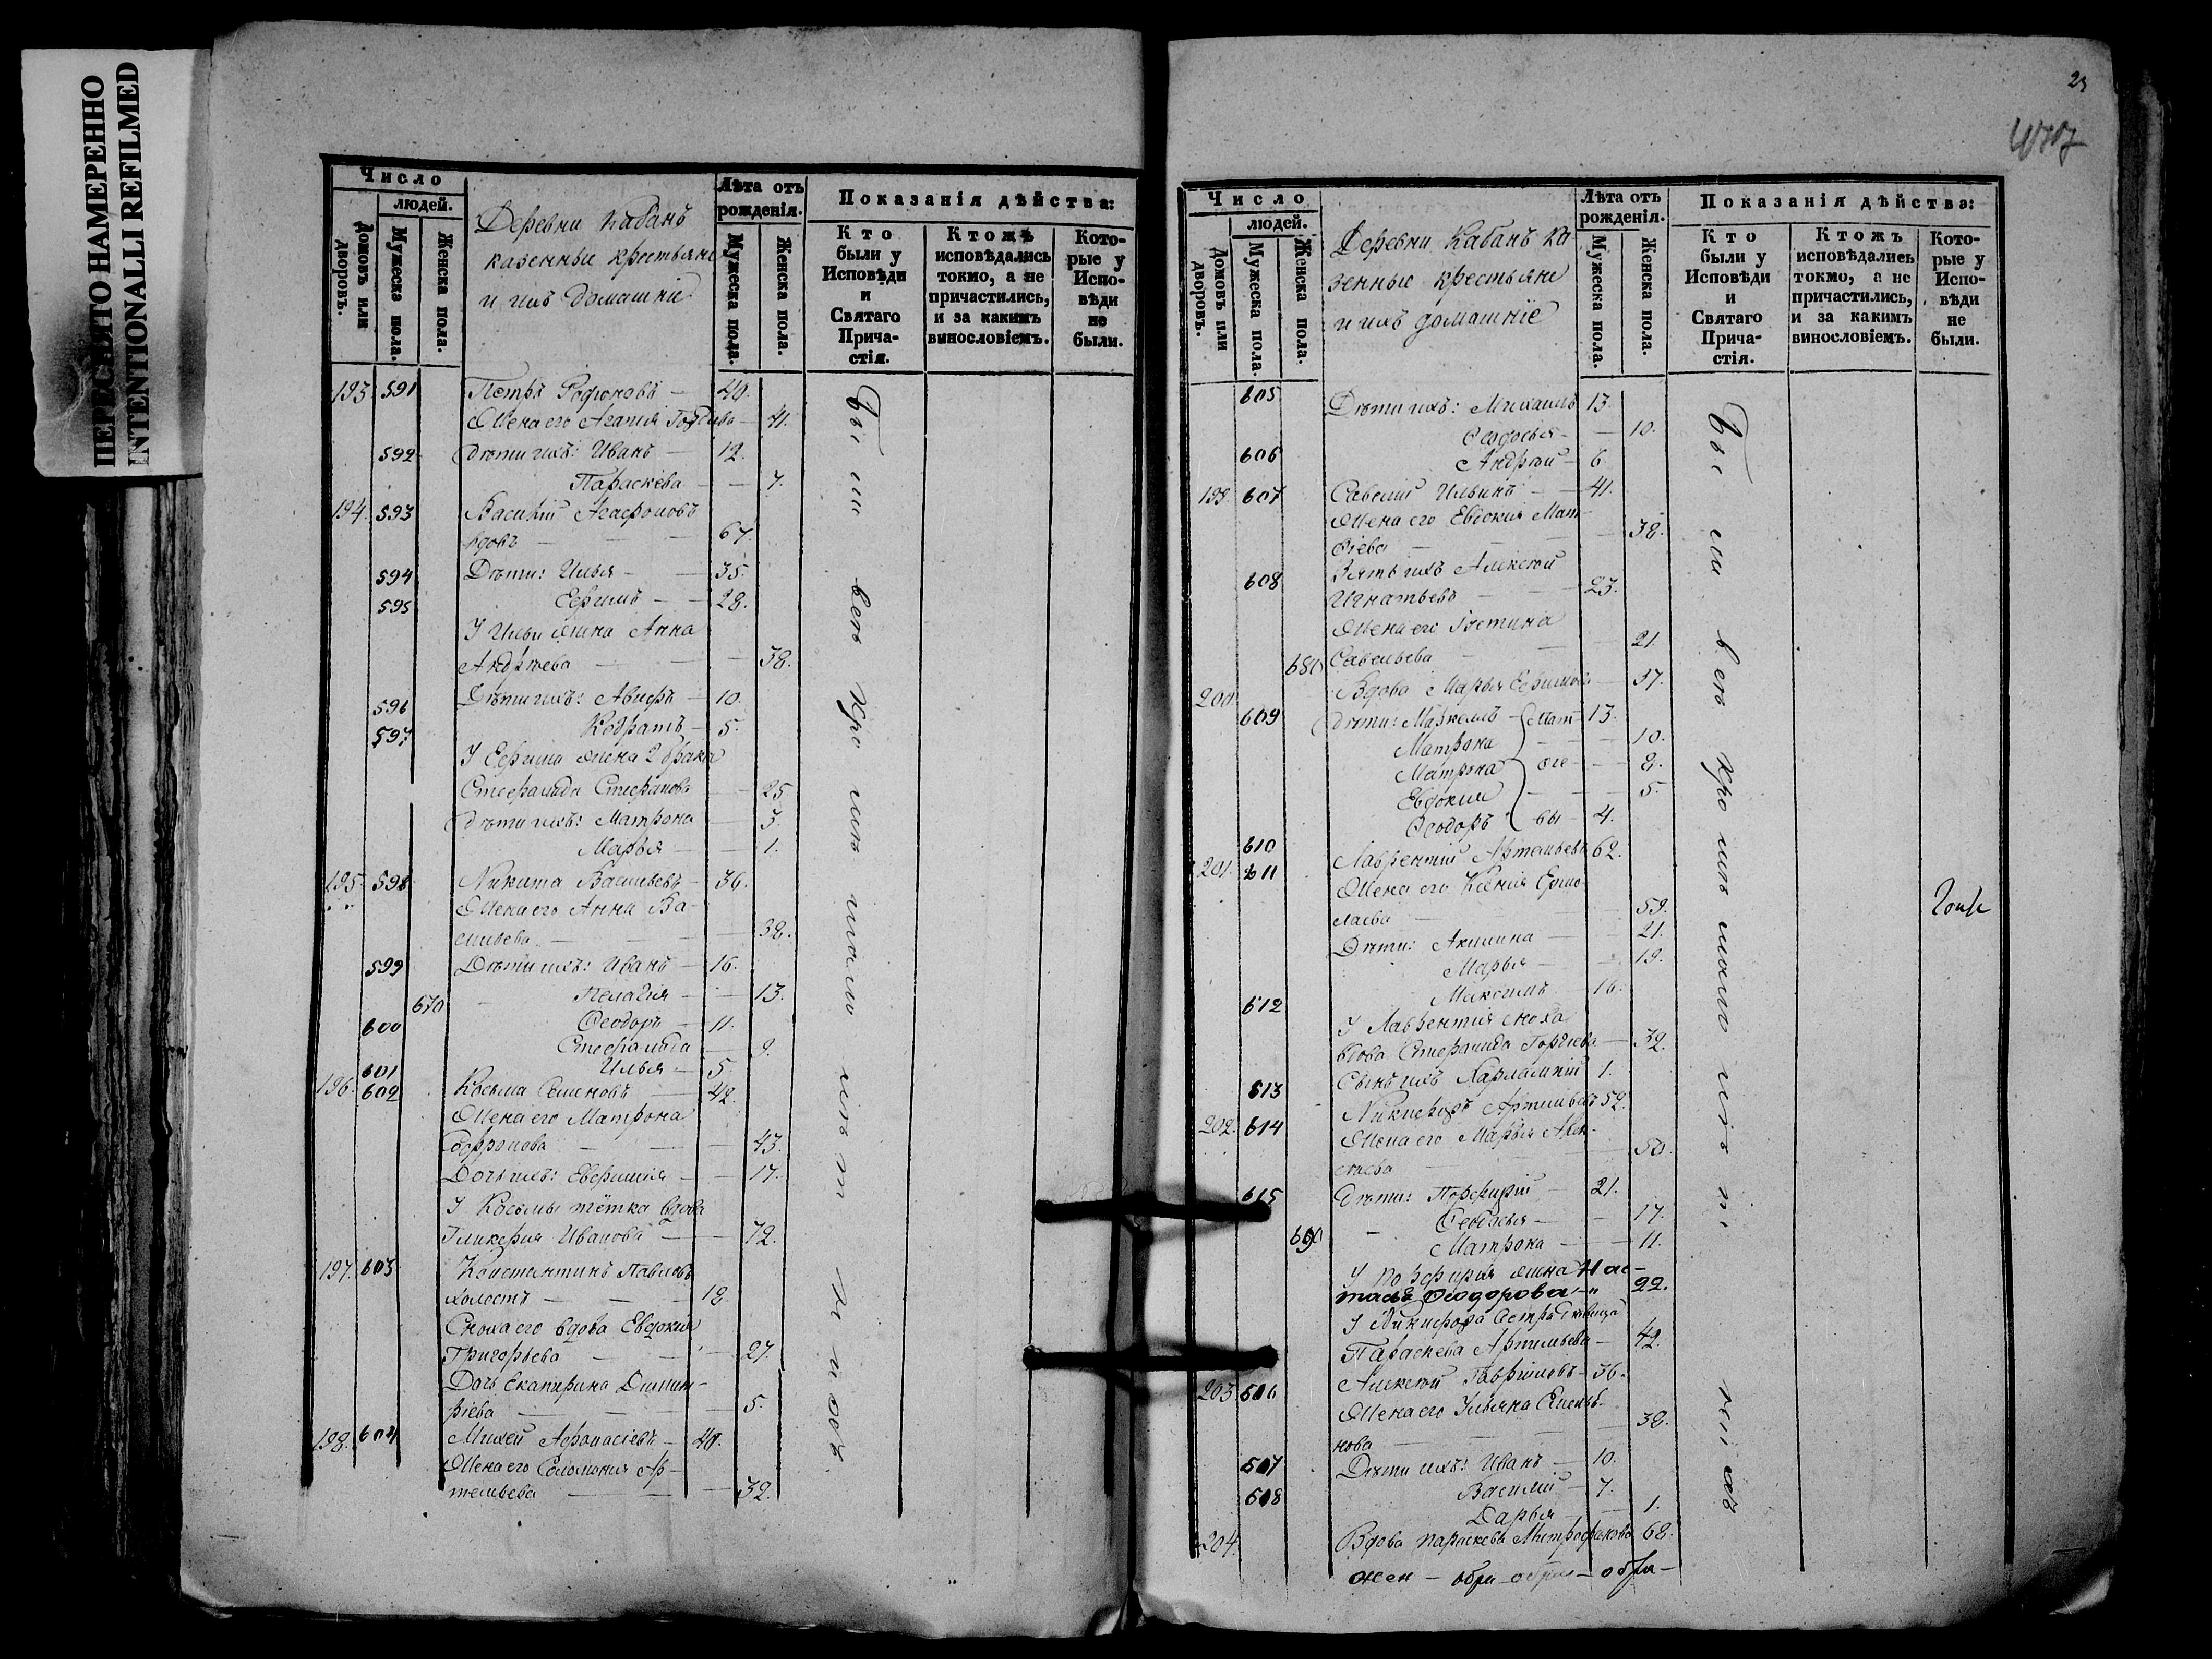 ПЕРЕСНЯТО НАМЕРЕННО
INTENTIONALLI REFILMED
Число
людей.
Домовъ или дворовъ.
Мужеска пола.
Женска пола.
Деревни Кабанъ
казенные крестьяне
и ихъ домашніе
Лѣта отъ рожденія.
Мужеска пола.
Женска пола.
Показанія дѣйства:
Кто были у Исповѣди и Святаго Прича-стія.
Ктожъ исповѣдались токмо, а не причастились, и за какимъ винословіемъ.
Кото-рые у Испо-вѣди не были.
193 591 Петръ Родіоновъ — 40.
Жена его Агапія — 41.
592 Дѣти ихъ: Иванъ — 12.
Параскева — 7.
194. 593 Василій Агафоновъ
вдовъ — 67.
594 Дѣти: Илья — 35.
595 Ефимъ — 28.
У Ильи жена Анна
Андрѣева — 38.
596 Дѣти ихъ: — 10.
597 Кодратъ — 5.
У Ефима жена 2 брака
Стефанида Стефанова — 25
Дѣти ихъ: Матрона — 3.
Марья — 1.
195. 598 Никита Васильевъ — 36.
Жена его Анна Ва-
сильева — 38.
599 Дѣти ихъ: Иванъ — 16.
670 Пелагія — 13.
600 Ѳеодоръ — 11.
Стефанида — 9.
601 Илья — 5
196. 602 Косьма Семеновъ — 42.
Жена его Матрона
Софронова — 43.
Дочь ихъ: Евфимія — 17.
У Косьмы тётка вдова
Гликерія Иванова — 72.
197. 603 Константинъ Павловъ
холостъ — 18
Сноха его вдова Евдокія
Григорьева — 27.
Дочь Екатерина Димит-
ріева — 5.
198. 604 Михей Афанасіевъ — 40.
Жена его Соломонія Ар-
темьева — 32.
Число
людей.
Домовъ или дворовъ.
Мужеска пола.
Женска пола.
Деревни Кабанъ ка
зенные крестьяне
и ихъ домашніе
Лѣта отъ рожденія.
Мужеска пола.
Женска пола.
Показанія дѣйства:
Кто были у Исповѣди и Святаго Прича-стія.
Ктожъ исповѣдались токмо, а не причастились, и за какимъ винословіемъ.
Кото-рые у Испо-вѣди не были.
605 Дѣти ихъ: Михаилъ 13.
Ѳеодосья — 10.
606 Андрей — 6
199. 607 Савелій Ильинъ — 41.
Жена его Евдокія Мат-
ѳіева — 38.
608 Зять ихъ Алексѣй
Игнатьевъ — 23.
Жена его Іустина
680 Савельева — 21.
200 Вдова Марья Ефимова — 37.
609 Дѣти: Маркелъ — Мат- 13.
Матрона — 10.
Матрона — ѳіе- — 8.
Евдокія — 5.
610 Ѳеодоръ — вы — 4.
201. 611 Лаврентій Артемьевъ 62.
Жена его Ксенія Ермо-
лаева — 59.
Дѣти: Акилина — 21.
Марья — 19.
612 Максимъ — 16.
У Лаврентія сноха
вдова Стефанида — 32.
613 Сынъ ихъ Харлампій 1.
202. 614 Никифоръ Артемьевъ 52.
Жена его Марья Алек-
сѣева — 50.
615 Дѣти: Порфирій — 21.
Ѳеодосья — 17.
690 Матрона — 11.
У Порфирія жена Нас-
тасья Ѳеодорова — 22.
У Никифора сестра дѣвица
Параскева Артемьева — 42.
203 Алексѣй Гавриловъ — 36.
Жена его Ульяна
нова — 38.
Дѣти ихъ: Иванъ — 10.
Василій — 7.
Дарья — 1.
204. Вдова Параскева Митрофанова 68.